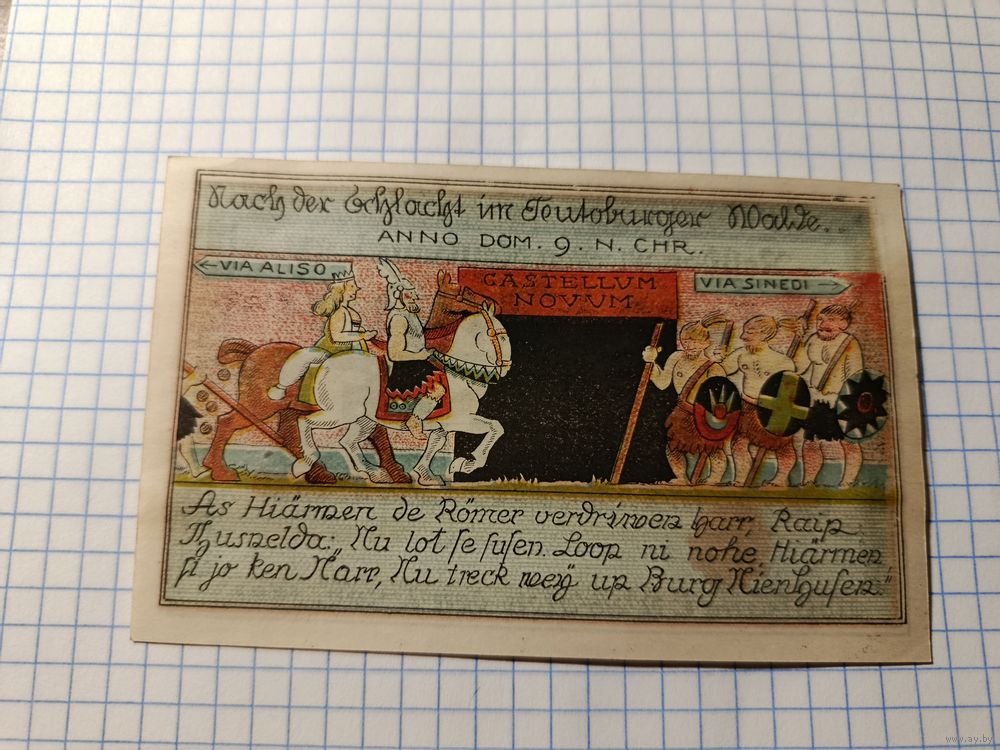 Nach der Schlacht im Teutoburger Walde..
ANNO DOM. 9. N. CHR.
←VIA ALISO
CASTELLUM
NOVUM
VIA SINEDI→
As Hiärmen de Römer verdriwen harr, Raip
Thusnelda: "Nu lot se susen. Loop ni nohe, Hiärmen,
si jo ken Narr, Nu treck weÿ up Burg Nienhusen."
www.ay.by